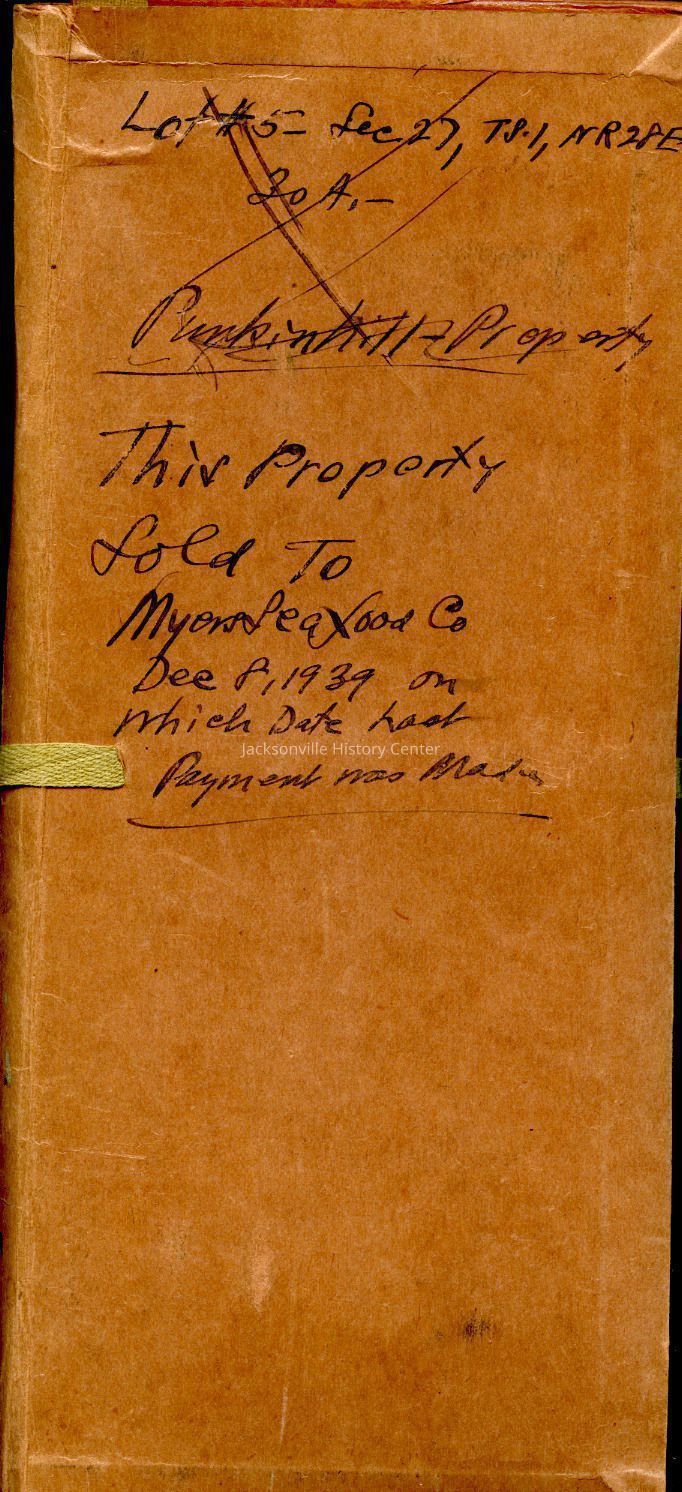 Lot #5- Sec 27, TS.1, NR28E
20 A.-
Punkin Hill - Property
This Property
Sold To
Myers Sea Food Co
Dec 8, 1939 on
which Date Last
Jacksonville History Center
Payment was Made